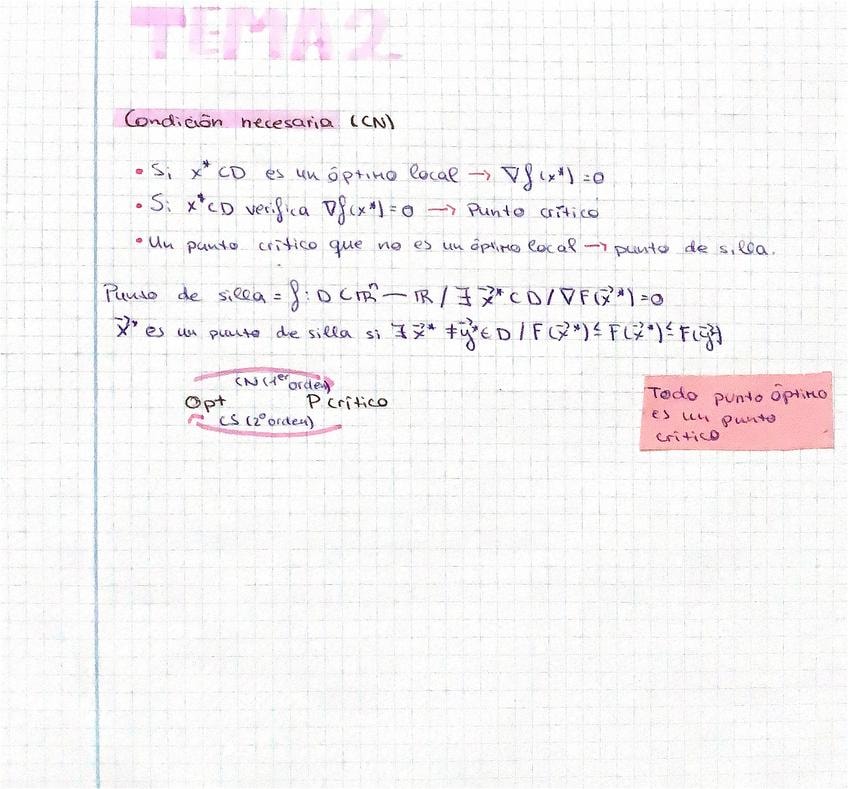 TEMA 2
Condición necesaria (CN)
• Si x* ⊂ D es un óptimo local → ∇f(x*) = 0
• Si x* ⊂ D verifica ∇f(x*) = 0 → Punto crítico
• Un punto crítico que no es un óptimo local → punto de silla.
Punto de silla = f: D ⊂ ℝⁿ — ℝ / ∃ x⃗* ⊂ D / ∇F(x⃗*) = 0
x⃗* es un punto de silla si ∃ z⃗* ≠ y⃗* ∈ D / F(z⃗*) ≤ F(x⃗*) ≤ F(y⃗*)
CN (1er orden)
Opt P crítico
CS (2º orden)
Todo punto óptimo
es un punto
crítico